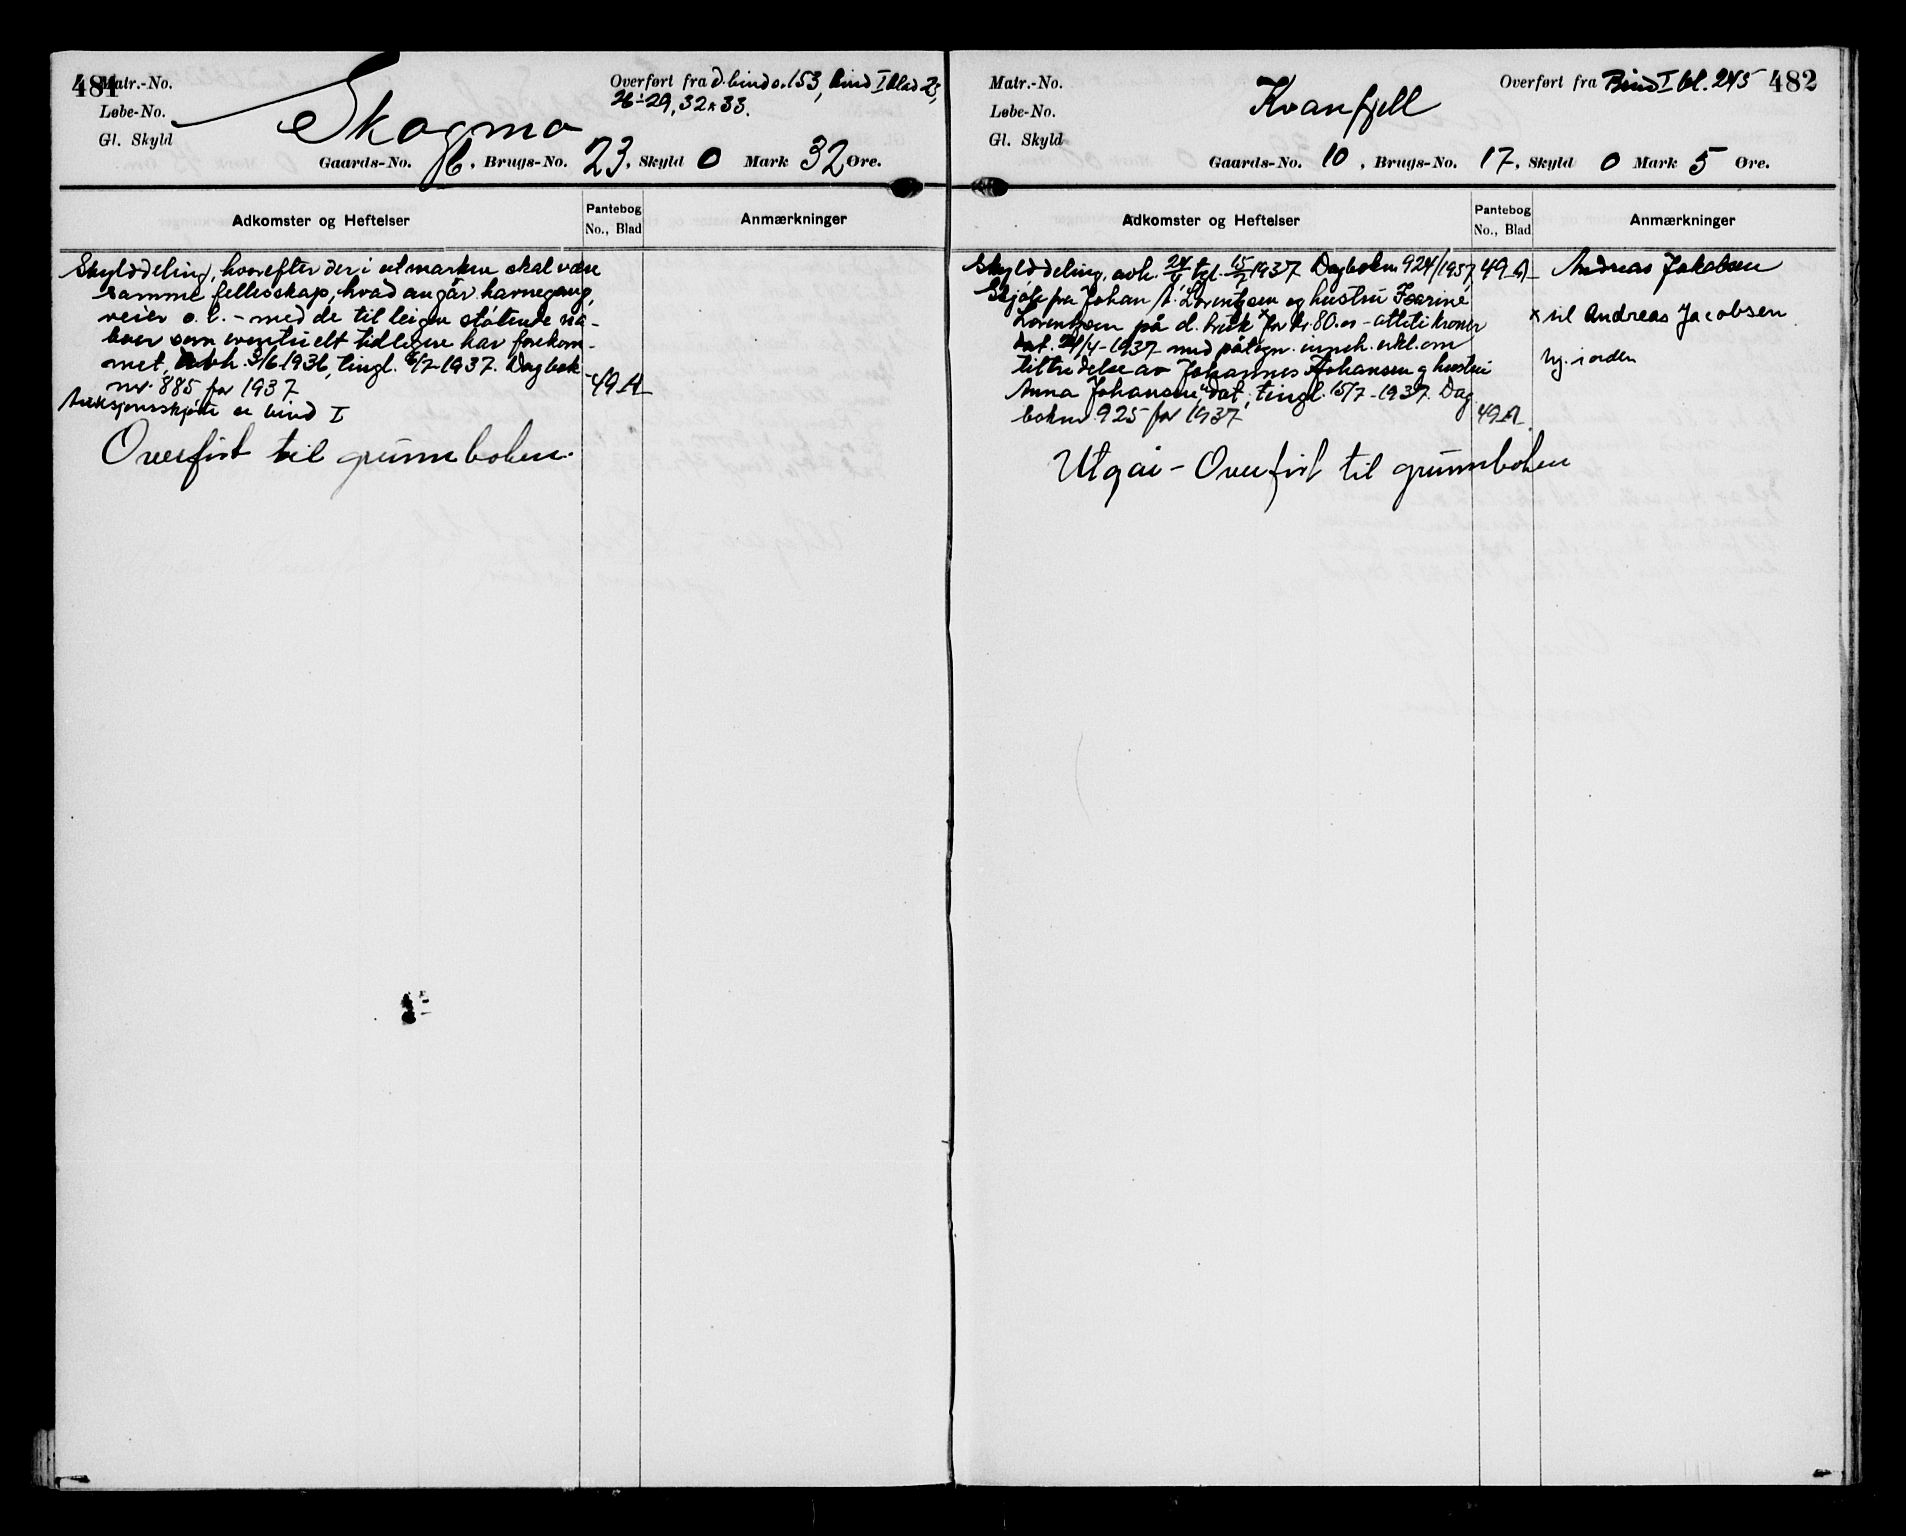 481
Matr.-No.
Løbe-No.
Gl. Skyld
Skogmo
Overført fra d. bind s. 153, bind I blad 25,
26-29, 32 & 33.
Gaards-No. 6, Brugs-No. 23, Skyld 0 Mark 32 Øre.
Adkomster og Heftelser
Pantebog
No., Blad
Anmærkninger
Skylddeling, hvorefter der i utmarken skal være
samme fellesskap, hvad angår havnegang,
veier o. l. – med de til leigen støtende na-
boer som eventuelt tidligere har forekom-
met, avh. 3/6 1936, tingl. 6/7-1937. Dagbok
nr. 885 for 1937 49 A
Auksjonsskjøte se bind I
Overført til grunnboken.
482
Matr.-No.
Løbe-No.
Gl. Skyld
Kvanfjell
Overført fra Bind I bl. 245
Gaards-No. 10, Brugs-No. 17, Skyld 0 Mark 5 Øre.
Adkomster og Heftelser
Pantebog
No., Blad
Anmærkninger
Skylddeling, avh. 24/4 tgl. 15/7 1937 Dagboknr. 924/1937, 49 A Andreas Jakobsen
Skjøte fra Johan A. Lorentzen og hustru
Lorentzen på d. bruk x for kr 80.00 – åttiti kroner x til Andreas Jacobsen
dat. 24/4-1937 med påtegn. erkl. om
tiltredelse av Johannes Johansen og hustru hj. i orden
Anna Johansen, dat., tingl. 15/7-1937. Dag
boknr. 925 for 1937, 49 A.
Utgår – Overført til grunnboken